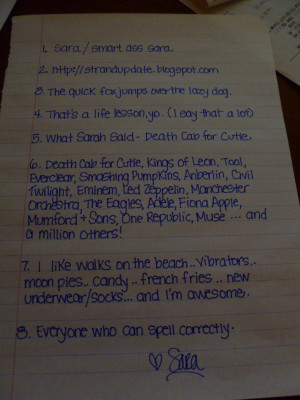 1. Sara / smart ass Sara.
2. http://strandupdate.blogspot.com
3. The quick fox jumps over the lazy dog.
4. That's a life lesson, yo. (I say that a lot)
5. What Sarah Said - Death Cab for Cutie.
6. Death Cab for Cutie, Kings of Leon, Tool,
Everclear, Smashing Pumpkins, Anberlin, Civil
Twilight, Eminem, Led Zeppelin, Manchester
Orchestra, The Eagles, Adele, Fiona Apple,
Mumford + Sons, One Republic, Muse ... and
a million others!
7. I like walks on the beach.. vibrators..
moon pies.. candy.. french fries.. new
underwear/socks... and I'm awesome.
8. Everyone who can spell correctly.
♡ Sara